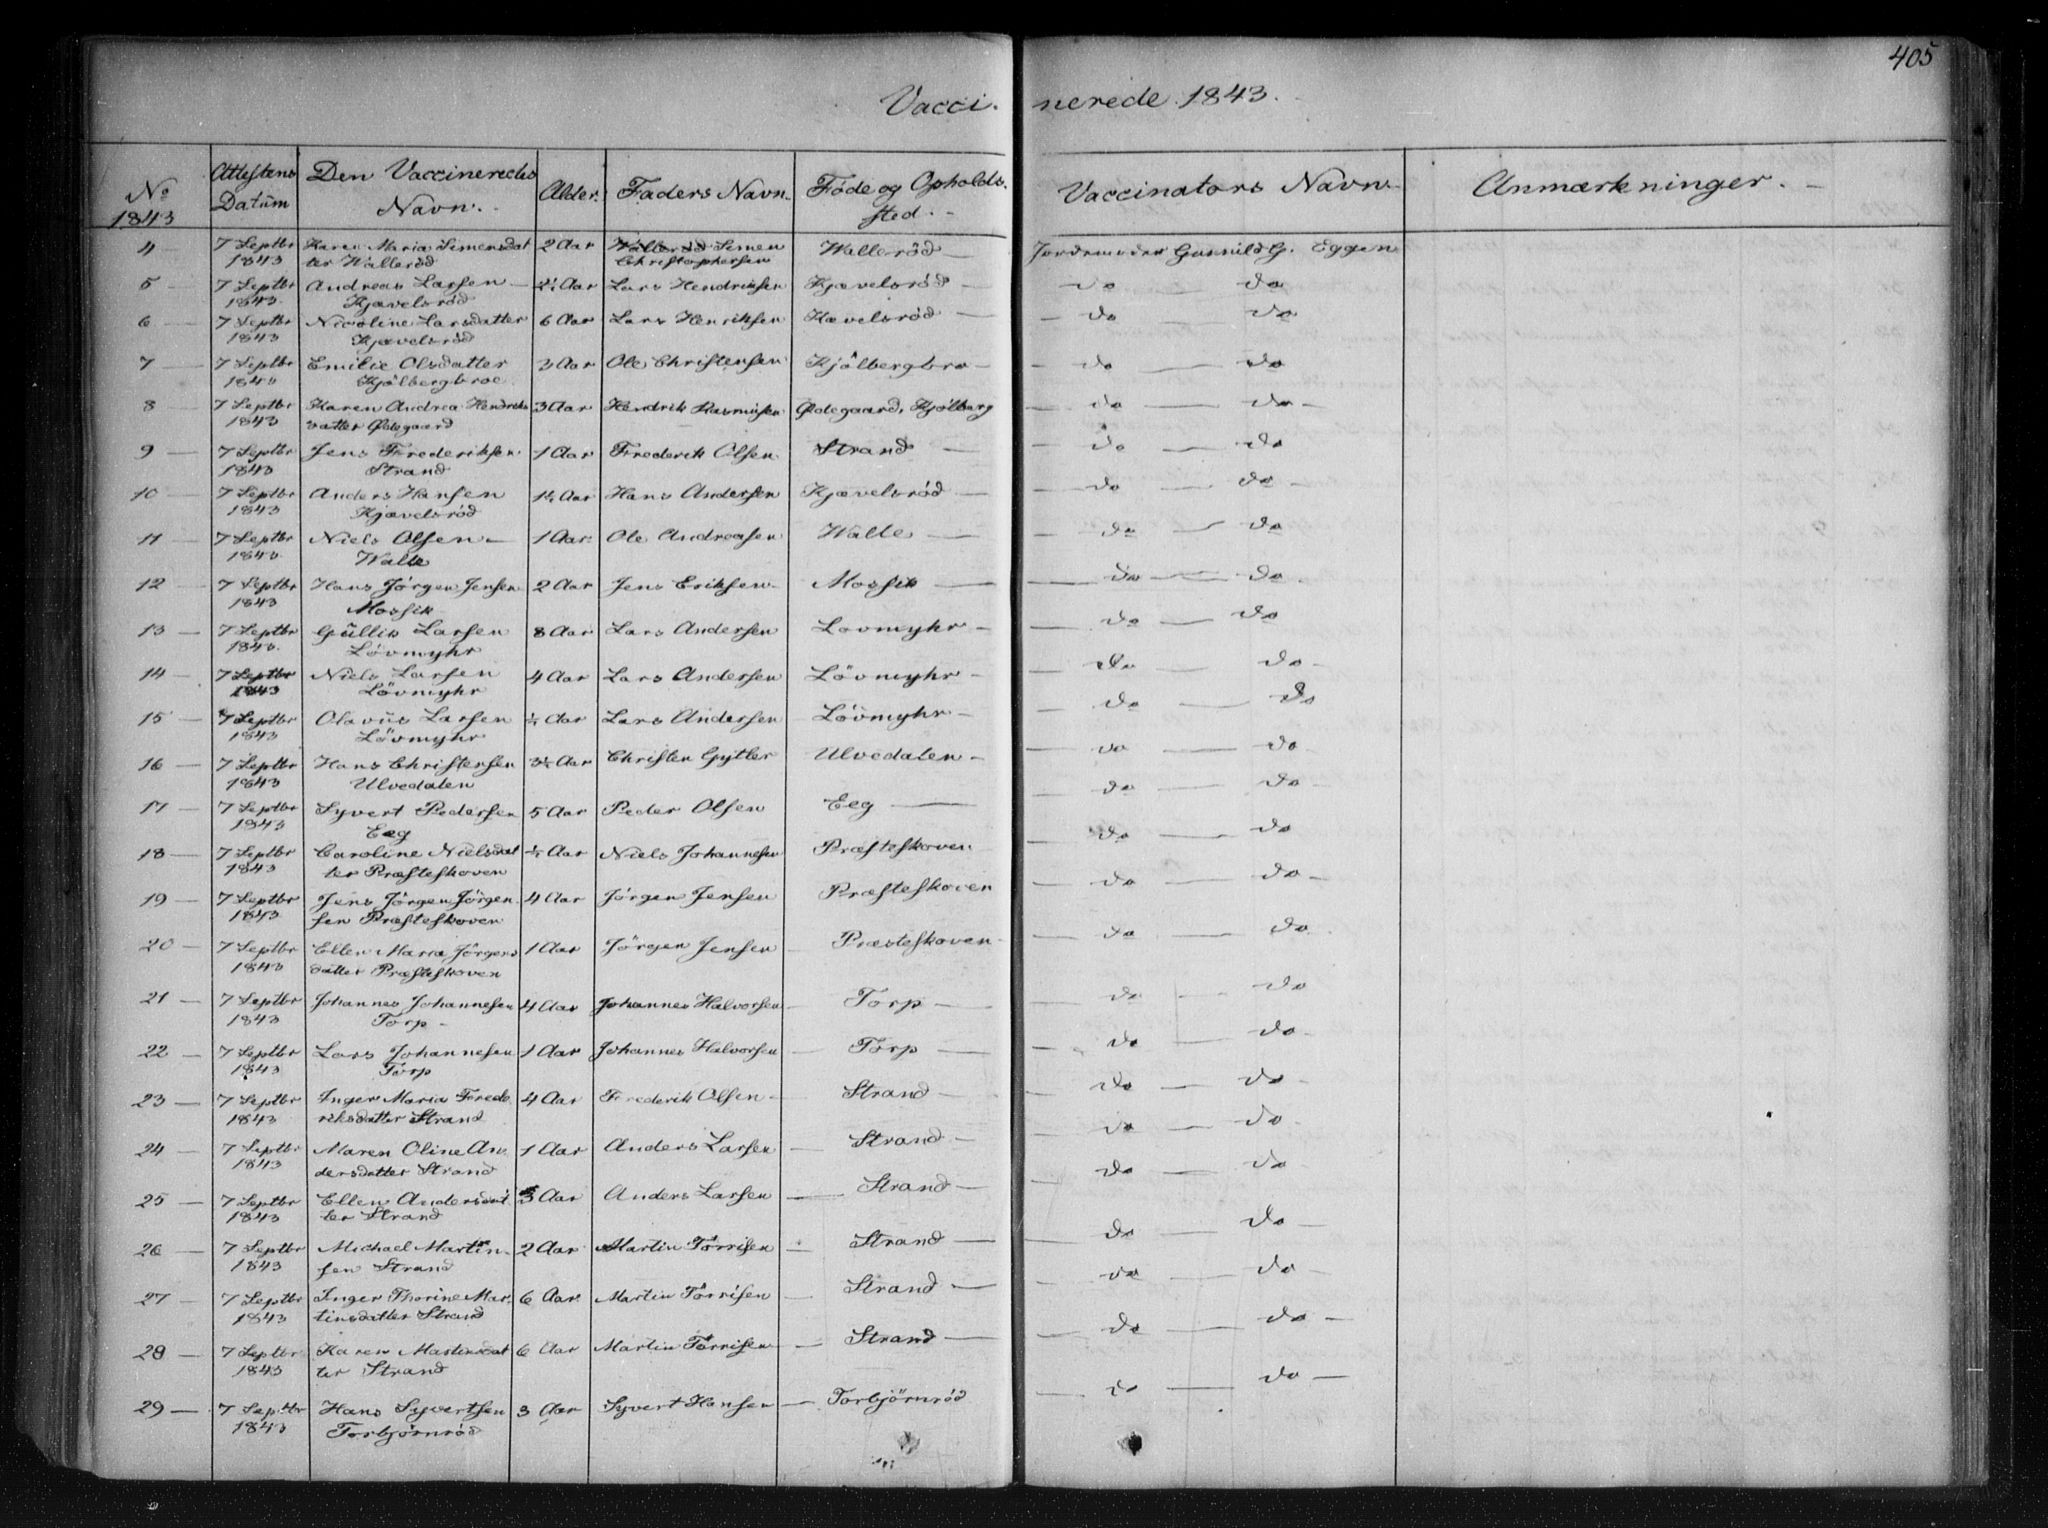 405
Vacci. nerede 1843.
No 1843
Attestens Datum
Den Vaccineredes Navn.
Alder.
Faders Navn.
Føde og Opholds sted.
Vaccinators Navn.
Anmærkninger.
4 — 7 Septbr 1843 Karen Maria Simensdat 2 Aar Simen Christophersen Wallerød — Jordemoder Gunnild G. Eggen
ter Wallerød
5 — 7 Septbr 1843 Andreas Larsen — Aar Lars Hendriksen Kjævelsrød — do — do
Kjævelsrød
6 — 7 Septbr 1843 Nicoline Larsdatter 6 Aar Lars Henriksen Kævelsrød — do — do
Kjævelsrød
7 — 7 Septbr 1843 Emilie Olsdatter 3 Aar Ole Christensen Kjölbergbro — do — do
Kjölbergbroe
8 — 7 Septbr 1843 Karen Andrea Hendriks 3 Aar Hendrik Rasmusen Ødegaard, Kjölberg — do — do
datter Ødegaard
9 — 7 Septbr 1843 Jens Frederiksen 1 Aar Frederik Olsen Strand — do — do
Strand
10 — 7 Septbr 1843 Anders Hansen Aar Hans Andersen Kjævelsrød — do — do
Kjævelsrød
11 — 7 Septbr 1843 Niels Olsen — 1 Aar Ole Andreasen Walle — do — do
Walle
12 — 7 Septbr 1843 Hans Jörgen Jensen 2 Aar Jens Eriksen Mossik — do — do
Mossik
13 — 7 Septbr 1843 Gullik Larsen 8 Aar Lars Andersen Lovmyhr — do — do
Lövmyhr
14 — 7 Septbr 1843 Niels Larsen 4 Aar Lars Andersen Lövmyhr — do — do
Lövmyhr
15 — 7 Septbr 1843 Olavus Larsen Aar Lars Andersen Lövmyhr — do — do
Lövmyhr
16 — 7 Septbr 1843 Hans Christensen Aar Christen Gytler Ulvedalen — do — do
Ulvedalen
17 — 7 Septbr 1843 Syvert Pedersen 5 Aar Peder Olsen Eeg — do — do
Eeg
18 — 7 Septbr 1843 Caroline Nielsdat Aar Niels Johannesen Præsteskoven — do — do
ter Præsteskoven
19 — 7 Septbr 1843 Jens Jörgen Jörgen 4 Aar Jörgen Jensen Præsteskoven — do — do
sen Præsteskoven
20 — 7 Septbr 1843 Ellen Maria Jörgens 1 Aar Jörgen Jensen Præsteskoven — do — do
datter Præsteskoven
21 — 7 Septbr 1843 Johannes Johannesen 4 Aar Johannes Halvorsen Torp — do — do
Torp
22 — 7 Septbr 1843 Lars Johannesen 1 Aar Johannes Halvorsen Torp — do — do
Torp
23 — 7 Septbr 1843 Inger Maria Frede 4 Aar Frederik Olsen Strand — do — do
riksdatter Strand
24 — 7 Septbr 1843 Maren Oline An 1 Aar Anders Larsen Strand — do — do
dersdatter Strand
25 — 7 Septbr 1843 Ellen Andersdat 3 Aar Anders Larsen Strand — do — do
ter Strand
26 — 7 Septbr 1843 Michael Martin 2 Aar Martin Torrisen Strand — do — do
sen Strand
27 — 7 Septbr 1843 Inger Thorine Mar 6 Aar Martin Torrisen Strand — do — do
tinsdatter Strand
28 — 7 Septbr 1843 Karen Martinsdat 6 Aar Martin Torrisen Strand — do — do
ter Strand
29 — 7 Septbr 1843 Hans Syvertsen 3 Aar Syvert Hansen — Torbjörnröd — do — do
Torbjörnröd